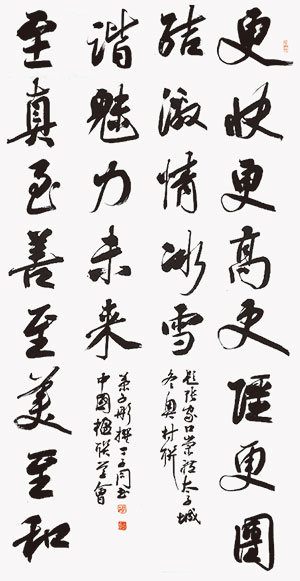 更快更高更强更團
结激情冰雪
题张家口崇礼太子城
冬奥村联
至真至善至美至和
谐魅力未来
子彤撰
中國楹联学會